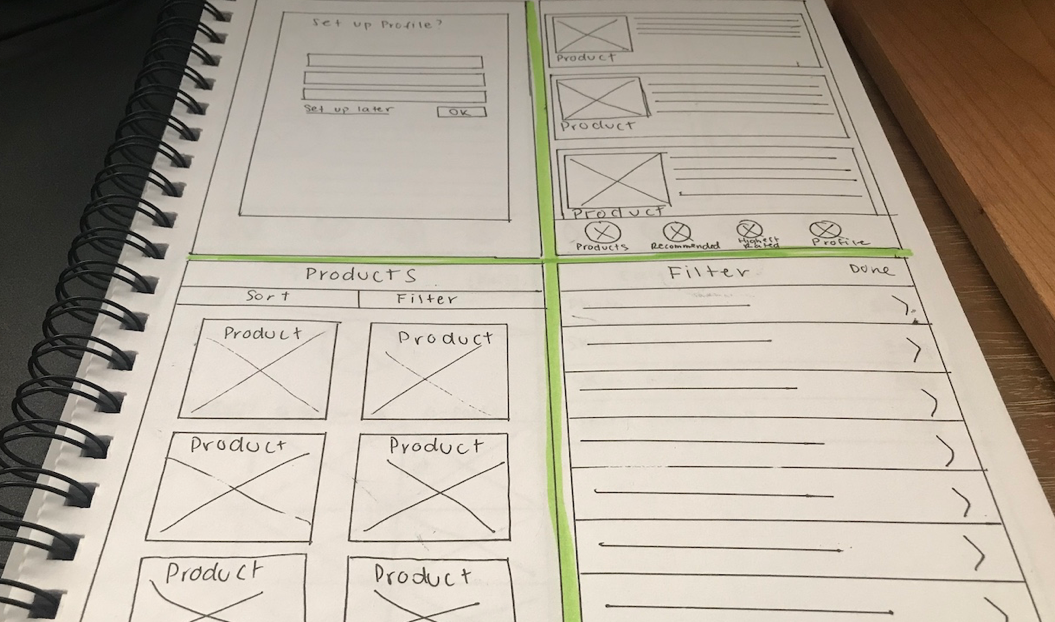 Set up Profile?
Set up later
OK
Product
Product
Product
Products
Recommended
Highest
Rated
Profile
Products
Sort
Filter
Product
Product
Product
Product
Product
Product
Filter
Done